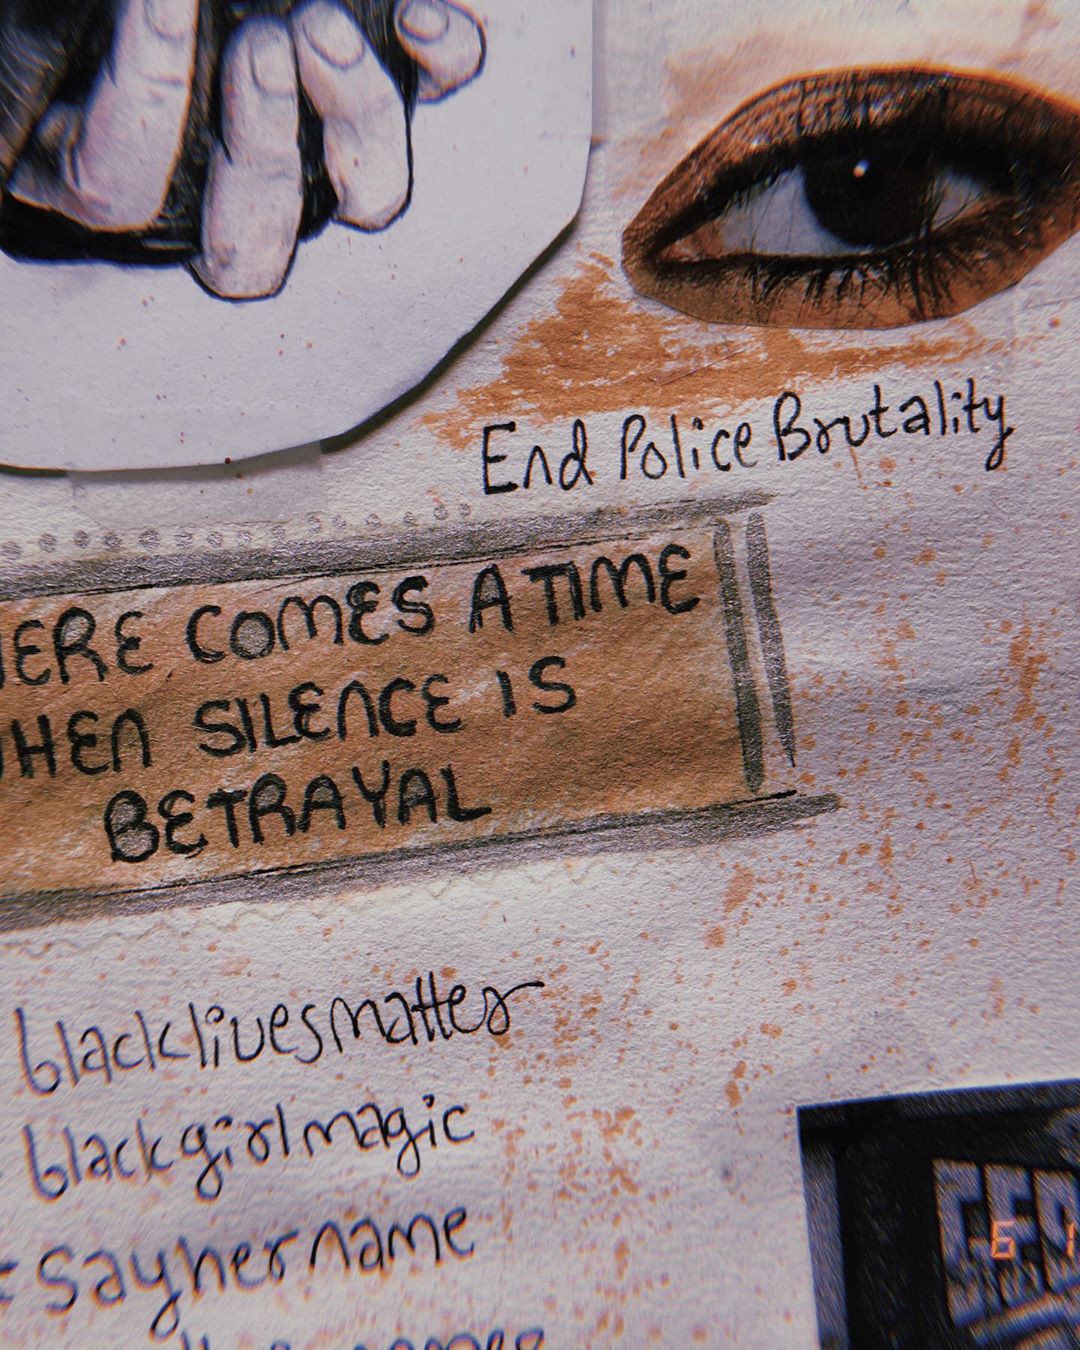 End Police Brutality
COMES A TIME
SILENCE IS
BETRAYAL
blacklivesmatter
blackgirlmagic
sayhername